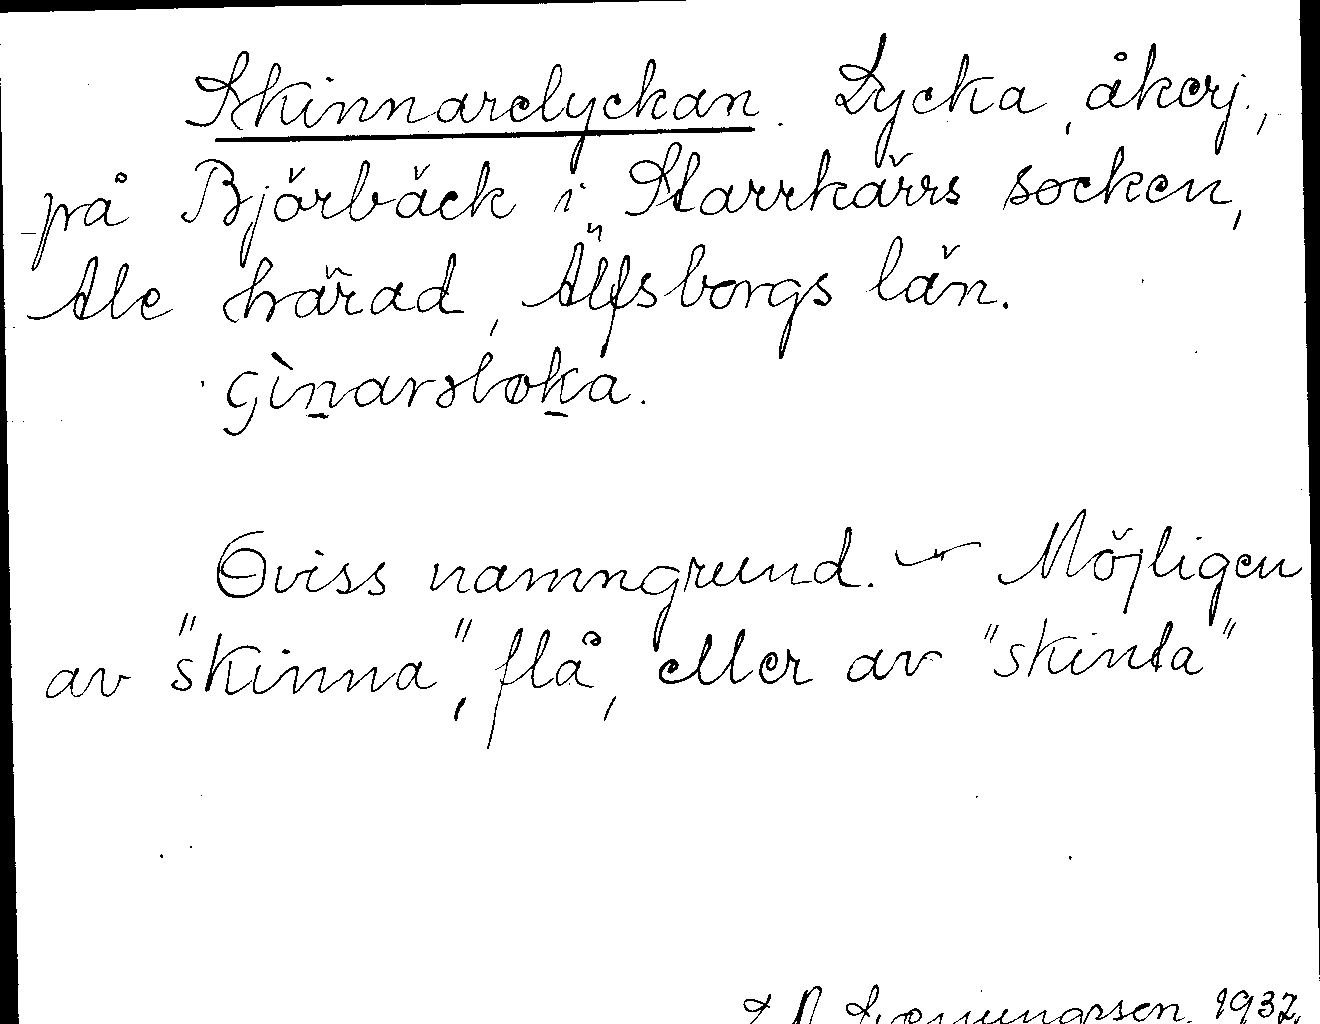 Skinnarelyckan. Lycka, åkerj.,
på Björbäck i Starrkärrs socken,
Ale härad, Älfsborgs län.
Oviss namngrund. – Möjligen
av "skinna", flå, eller av "skinta"
1932.